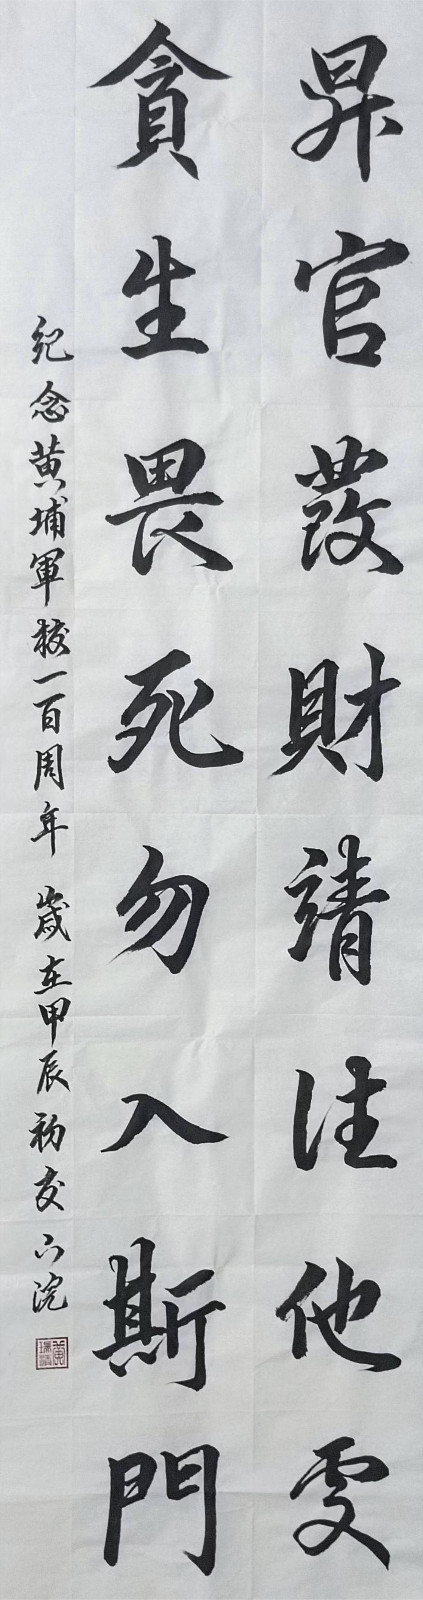 昇官發財請往他處
貪生畏死勿入斯門
紀念黄埔軍校一百周年 歲在甲辰初夏下浣